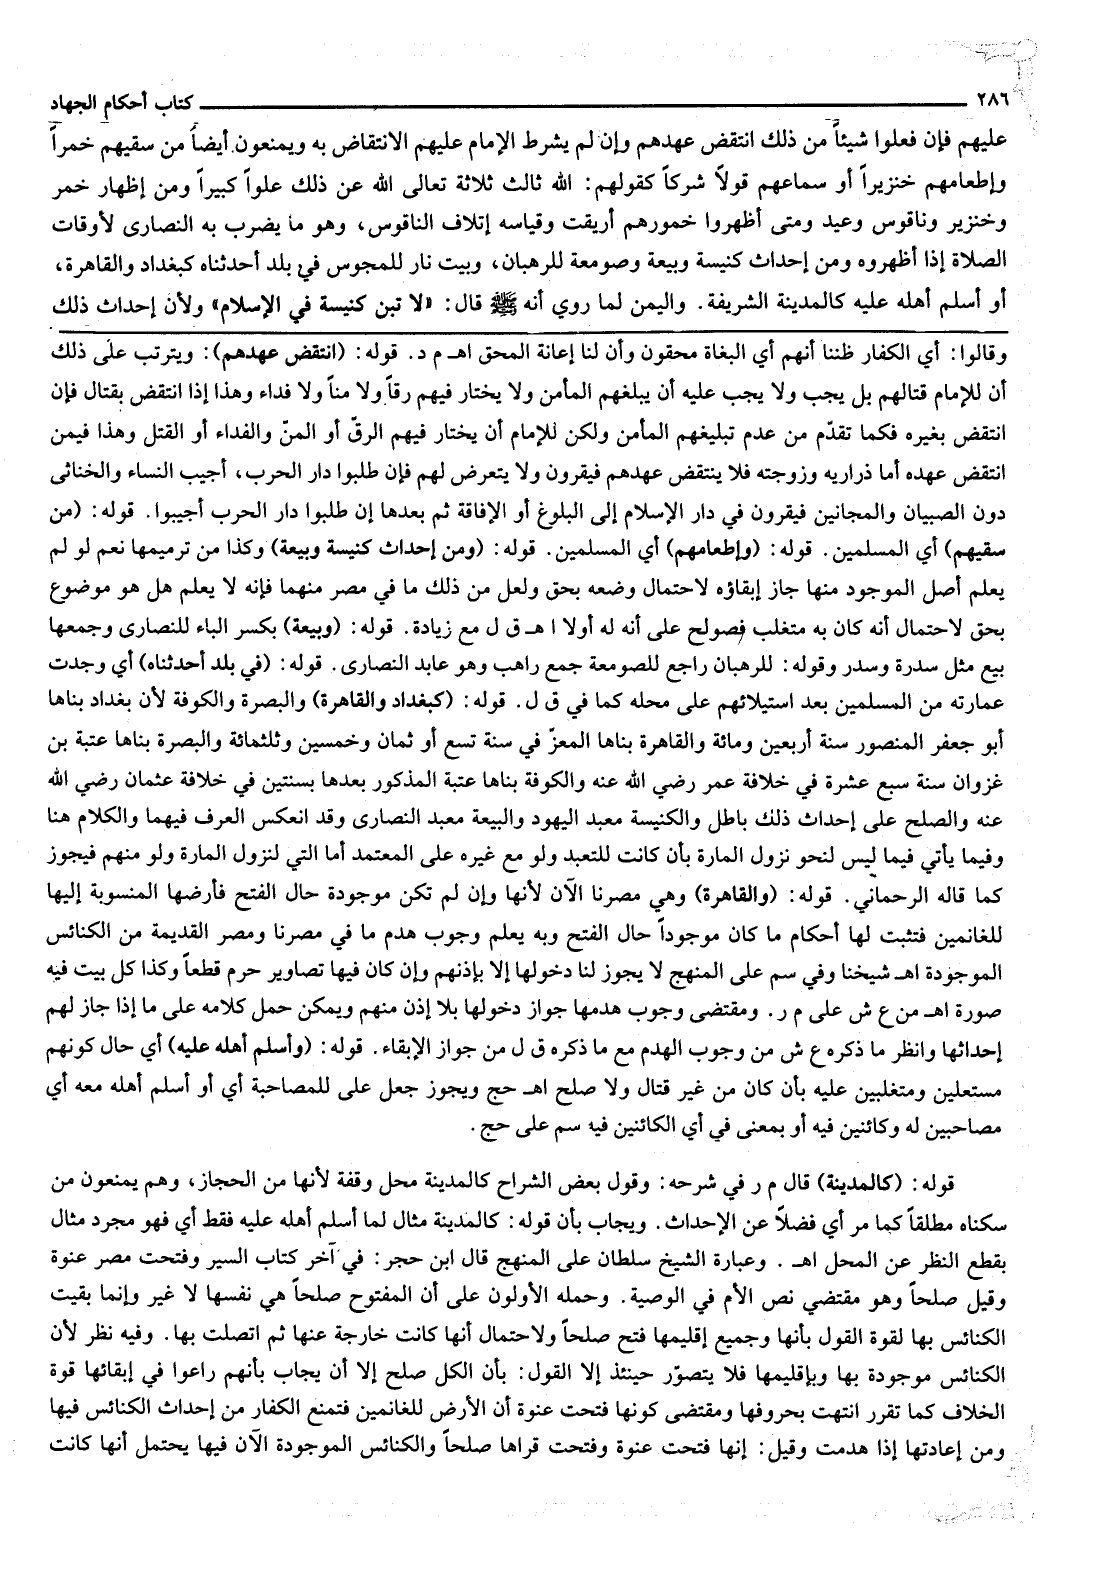 ٢٨٦ كتاب أحكام الجهاد
عليهم فإن فعلوا شيئاً من ذلك انتقض عهدهم وإن لم يشرط الإمام عليهم الانتقاض به ويمنعون أيضاً من سقيهم خمراً
وإطعامهم خنزيراً أو سماعهم قولاً شركاً كقولهم: الله ثالث ثلاثة تعالى الله عن ذلك علواً كبيراً ومن إظهار خمر
وخنزير وناقوس وعيد ومتى أظهروا خمورهم أريقت وقياسه إتلاف الناقوس، وهو ما يضرب به النصارى لأوقات
الصلاة إذا أظهروه ومن إحداث كنيسة وبيعة وصومعة للرهبان، وبيت نار للمجوس في بلد أحدثناه كبغداد والقاهرة،
أو أسلم أهله عليه كالمدينة الشريفة. واليمن لما روي أنه ﷺ قال: «لا تبن كنيسة في الإسلام» ولأن إحداث ذلك
وقالوا: أي الكفار ظننا أنهم أي البغاة محقون وأن لنا إعانة المحق اهـ م د. قوله: (انتقض عهدهم): ويترتب على ذلك
أن للإمام قتالهم بل يجب ولا يجب عليه أن يبلغهم المأمن ولا يختار فيهم رقاً ولا مناً ولا فداء وهذا إذا انتقض بقتال فإن
انتقض بغيره فكما تقدّم من عدم تبليغهم المأمن ولكن للإمام أن يختار فيهم الرق أو المنّ والفداء أو القتل وهذا فيمن
انتقض عهده أما ذراريه وزوجته فلا ينتقض عهدهم فيقرون ولا يتعرض لهم فإن طلبوا دار الحرب، أجيب النساء والخناثى
دون الصبيان والمجانين فيقرون في دار الإسلام إلى البلوغ أو الإفاقة ثم بعدها إن طلبوا دار الحرب أجيبوا. قوله: (من
سقيهم) أي المسلمين. قوله: (وإطعامهم) أي المسلمين. قوله: (ومن إحداث كنيسة وبيعة) وكذا من ترميمها نعم لو لم
يعلم أصل الموجود منها جاز إبقاؤه لاحتمال وضعه بحق ولعل من ذلك ما في مصر منهما فإنه لا يعلم هل هو موضوع
بحق لاحتمال أنه كان به متغلب فصولح على أنه له أولا ا هـ ق ل مع زيادة. قوله: (وبيعة) بكسر الباء للنصارى وجمعها
بيع مثل سدرة وسدر وقوله: للرهبان راجع للصومعة جمع راهب وهو عابد النصارى. قوله: (في بلد أحدثناه) أي وجدت
عمارته من المسلمين بعد استيلائهم على محله كما في ق ل. قوله: (كبغداد والقاهرة) والبصرة والكوفة لأن بغداد بناها
أبو جعفر المنصور سنة أربعين ومائة والقاهرة بناها المعزّ في سنة تسع أو ثمان وخمسين وثلثمائة والبصرة بناها عتبة بن
غزوان سنة سبع عشرة في خلافة عمر رضي الله عنه والكوفة بناها عتبة المذكور بعدها بسنتين في خلافة عثمان رضي الله
عنه والصلح على إحداث ذلك باطل والكنيسة معبد اليهود والبيعة معبد النصارى وقد انعكس العرف فيهما والكلام هنا
وفيما يأتي فيما ليس لنحو نزول المارة بأن كانت للتعبد ولو مع غيره على المعتمد أما التي لنزول المارة ولو منهم فيجوز
كما قاله الرحماني. قوله: (والقاهرة) وهي مصرنا الآن لأنها وإن لم تكن موجودة حال الفتح فأرضها المنسوبة إليها
للغانمين فتثبت لها أحكام ما كان موجوداً حال الفتح وبه يعلم وجوب هدم ما في مصرنا ومصر القديمة من الكنائس
الموجودة اهـ شيخنا وفي سم على المنهج لا يجوز لنا دخولها إلا بإذنهم وإن كان فيها تصاوير حرم قطعاً وكذا كل بيت فيه
صورة اهـ من ع ش على م ر. ومقتضى وجوب هدمها جواز دخولها بلا إذن منهم ويمكن حمل كلامه على ما إذا جاز لهم
إحداثها وانظر ما ذكره ع ش من وجوب الهدم مع ما ذكره ق ل من جواز الإبقاء. قوله: (وأسلم أهله عليه) أي حال كونهم
مستعلين ومتغلبين عليه بأن كان من غير قتال ولا صلح اهـ حج ويجوز جعل على للمصاحبة أي أو أسلم أهله معه أي
مصاحبين له وكائنين فيه أو بمعنى في أي الكائنين فيه سم على حج.
قوله: (كالمدينة) قال م ر في شرحه: وقول بعض الشراح كالمدينة محل وقفة لأنها من الحجاز، وهم يمنعون من
سكناه مطلقاً كما مر أي فضلاً عن الإحداث. ويجاب بأن قوله: كالمدينة مثال لما أسلم أهله عليه فقط أي فهو مجرد مثال
بقطع النظر عن المحل اهـ. وعبارة الشيخ سلطان على المنهج قال ابن حجر: في آخر كتاب السير وفتحت مصر عنوة
وقيل صلحاً وهو مقتضي نص الأم في الوصية. وحمله الأولون على أن المفتوح صلحاً هي نفسها لا غير وإنما بقيت
الكنائس بها لقوة القول بأنها وجميع إقليمها فتح صلحاً ولاحتمال أنها كانت خارجة عنها ثم اتصلت بها. وفيه نظر لأن
الكنائس موجودة بها وبإقليمها فلا يتصوّر حينئذ إلا القول: بأن الكل صلح إلا أن يجاب بأنهم راعوا في إبقائها قوة
الخلاف كما تقرر انتهت بحروفها ومقتضى كونها فتحت عنوة أن الأرض للغانمين فتمنع الكفار من إحداث الكنائس فيها
ومن إعادتها إذا هدمت وقيل: إنها فتحت عنوة وفتحت قراها صلحاً والكنائس الموجودة الآن فيها يحتمل أنها كانت